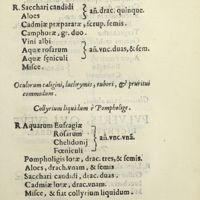 R. Sacchari candidi } añ. drac. quinque.
Aloes
Cadmiæ præparatæ, scrup. semis.
Camphoræ, gr. duo.
Vini albi
Aquæ rosarum } añ. vnc. duas, & sem.
Aquæ fœniculi
Misce.
Oculorum caligini, lachrymis, rubori, & pruritui
commodum.
Collyrium liquidum è Pompholyge.
R. Aquarum Eufragiæ
Rosarum } añ. vnc. vnã.
Chelidonij
Fœniculi
Pompholigis lotæ, drac. tres, & semis.
Aloes, drac. vnam & semis.
Sacchari candidi, drac. duas.
Cadmiæ lotæ, drac. vnam.
Misce, & fiat collyrium liquidum.